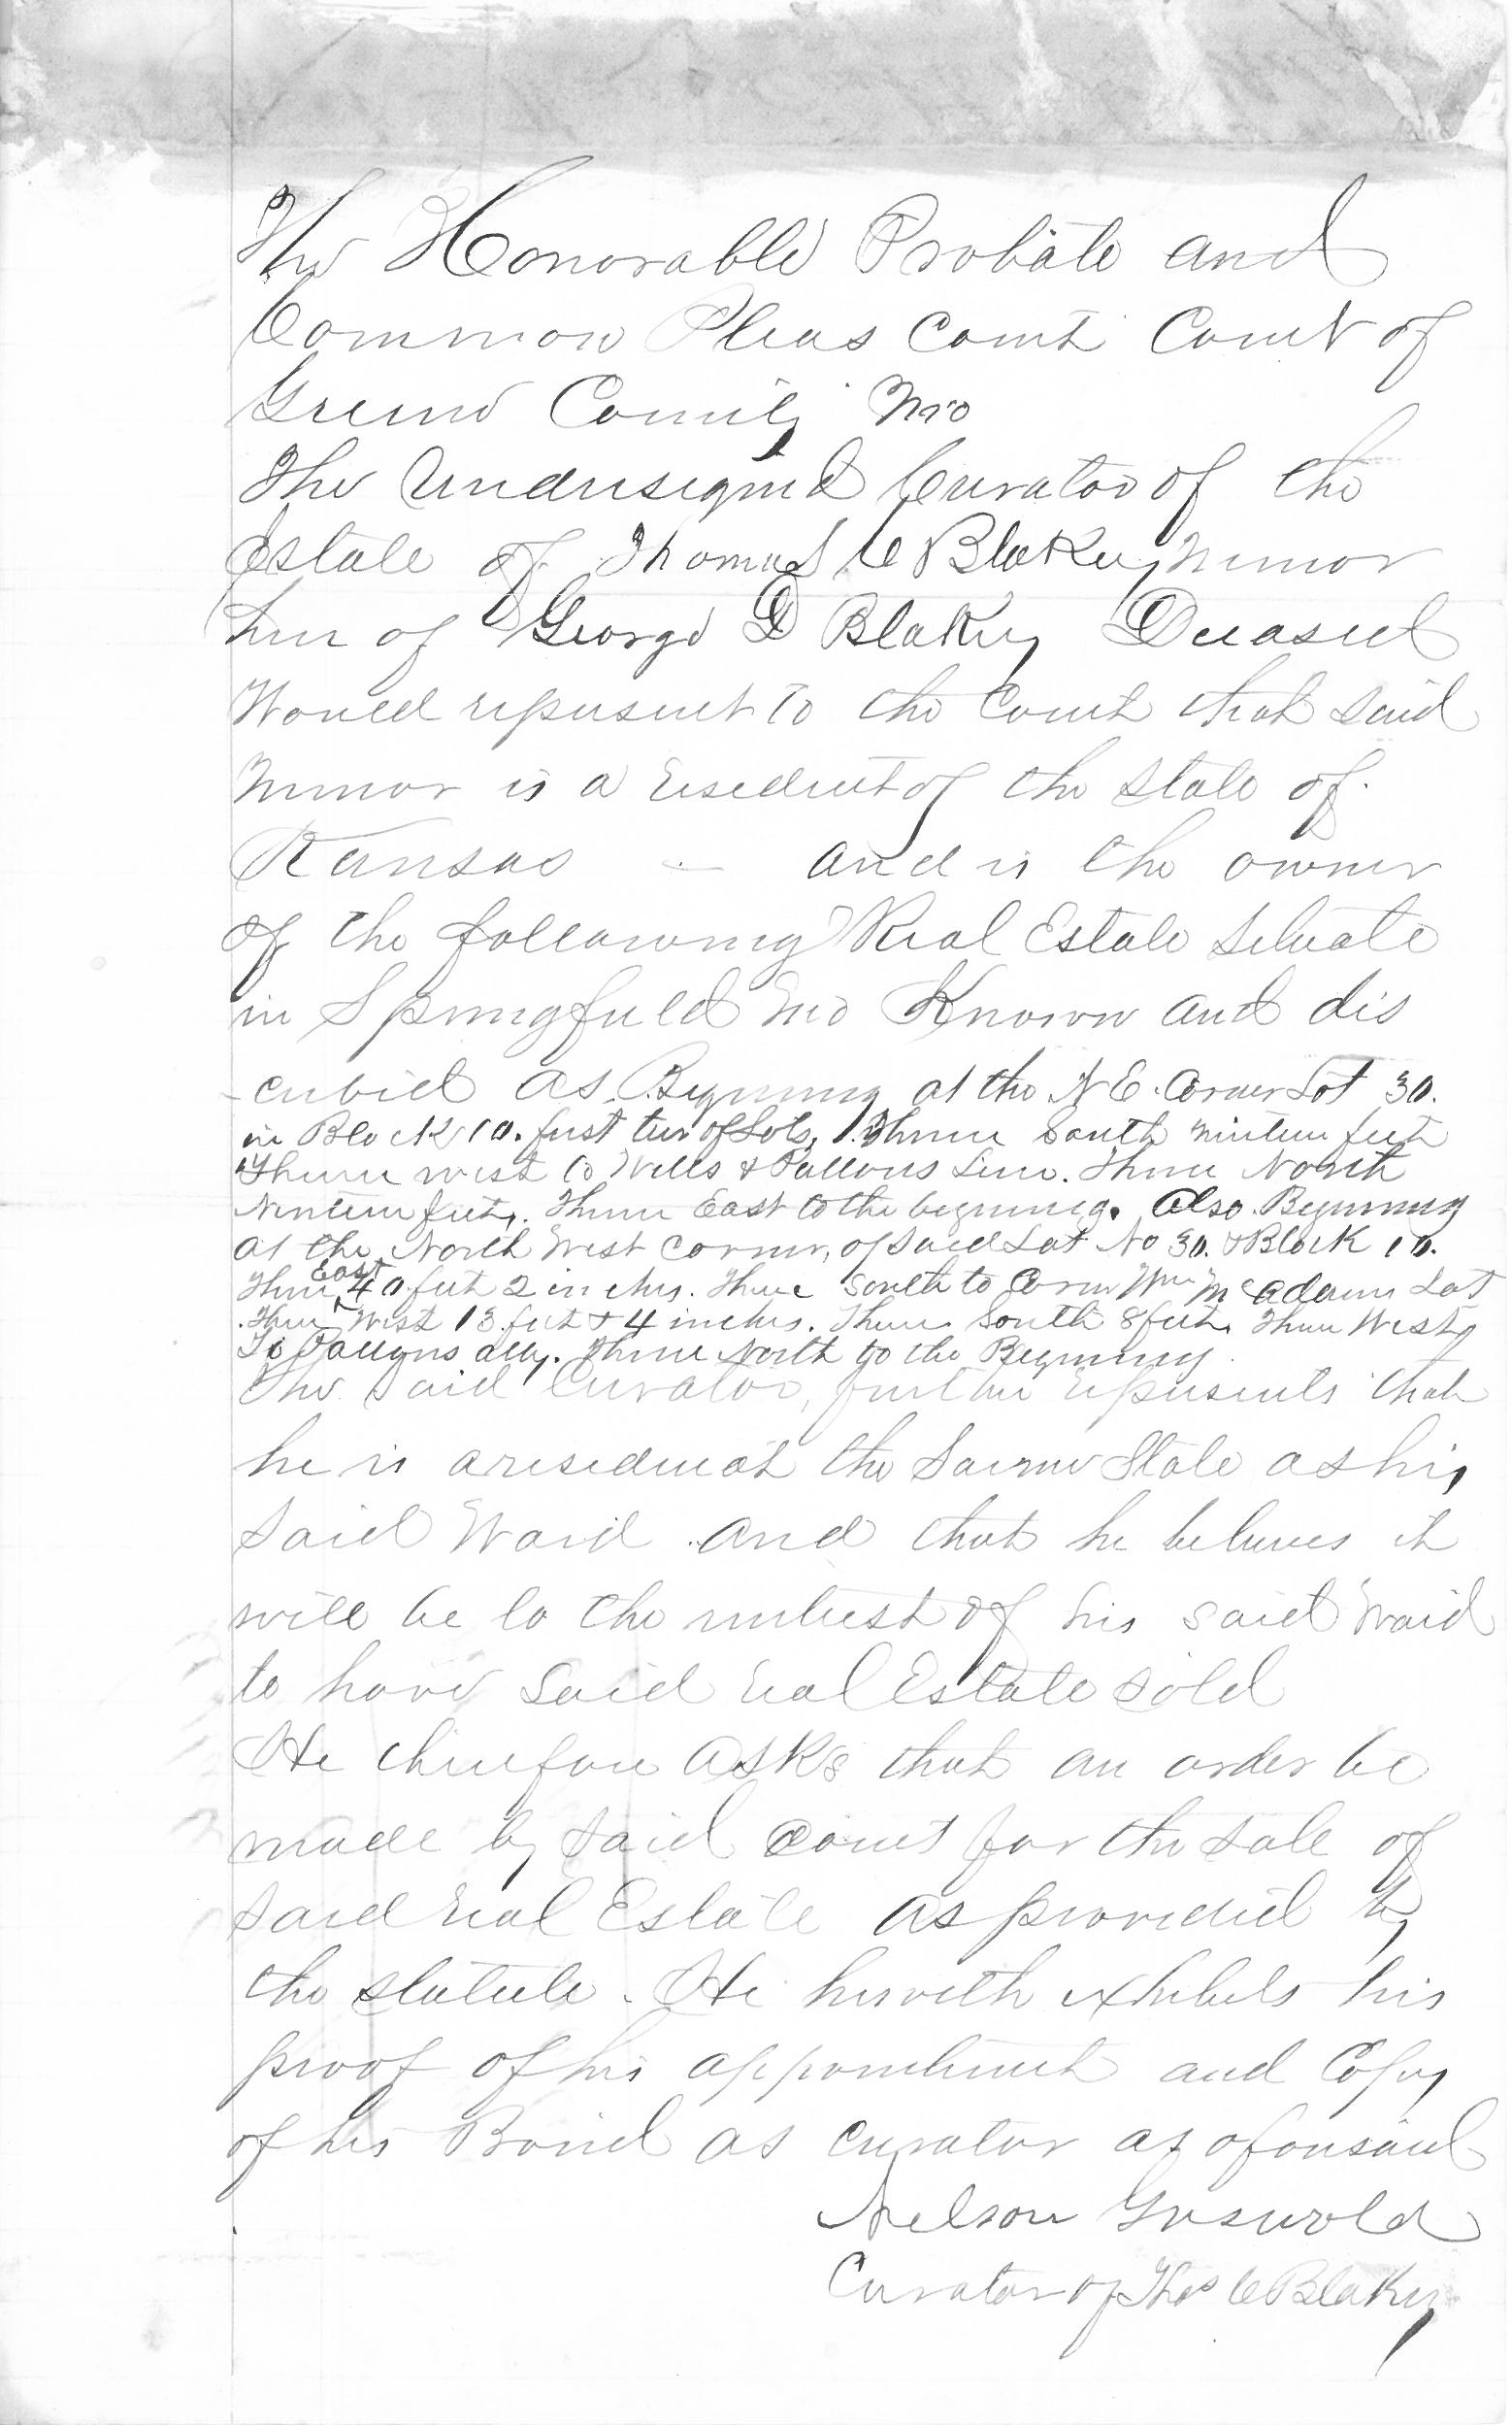 The Honorable Probate and
Common Pleas Court Court of
Greene County Mo
The Undersigned Curator of the
Estate of Thomas C Blakey minor
heir of George D Blakey Deceased
Would represent to the Court that said
minor is a resident of the State of
Kansas — and is the owner
of the following Real Estate Situate
in Springfield Mo Known and dis
cribed as Beginning at the N E. Corner Lot 30.
in Block 10. first tier of Lots, Thence South ninteen feet
Thence west to Wells & Pattons Line. Thence North
Ninteen feet. Thence East to the beginning. Also Beginning
at the North West Corner, of said Lot No 30. & Block 10.
Thence East 40 feet 2 inches. Thence South to Corner Wm McAdams Lot
Thence West 13 feet & 4 inches. Thence South 8 feet Thence West
To Pattons ally. Thence North to the Beginning
The Said Curator, further represents that
he is a resident the Same State as his
Said Ward and that he believes it
will be to the interest of his said Ward
to have Said real Estate sold
He therefore asks that an order be
made by said court for the sale of
said real Estate as provided by
the statute. He herwith exhibits his
proof of his appointment and Copy
of his Bond as curator as aforesaid
Nelson Griswold
Curator of Thos C Blakey